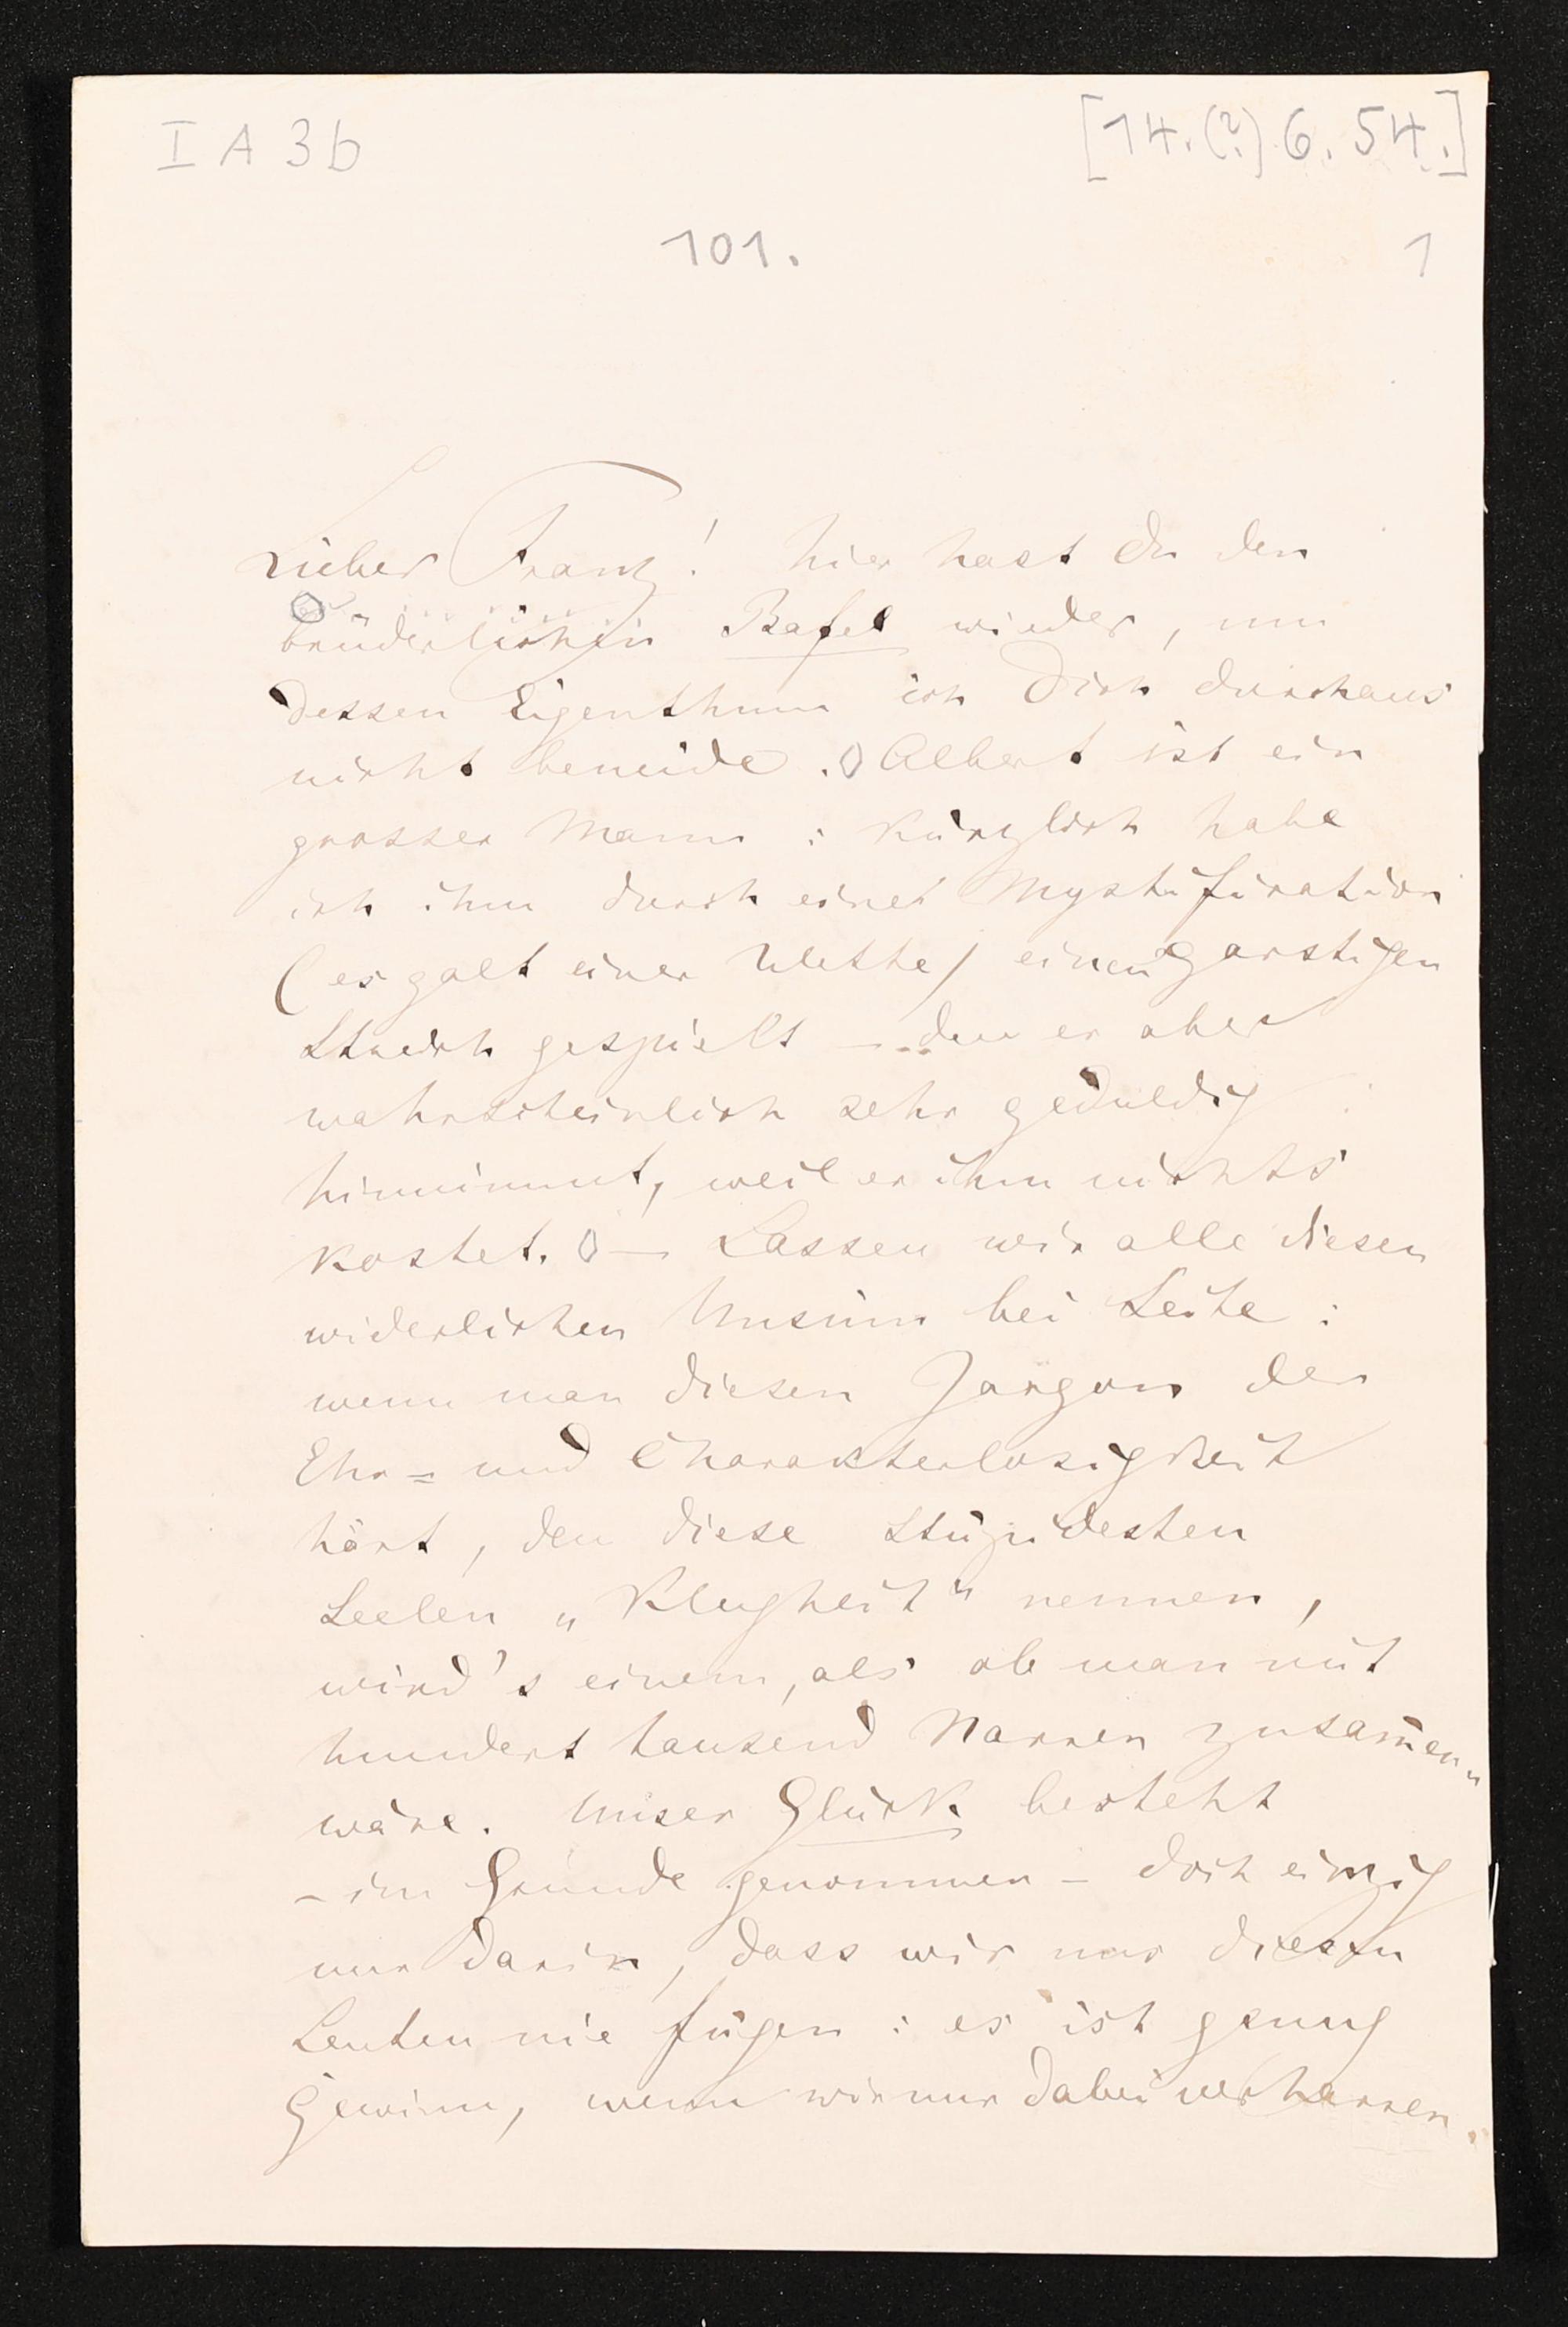 I A 3b
[14.(?) 6. 54.]
101.
1
Lieber Franz! hier hast du den
brüderlichen Bafel wieder, um
dessen Eigenthum ich Dich durchaus
nicht beneide. Albert ist ein
grosser Mann: kürzlich habe
ich ihm durch eine Mystification
(es galt einer Wette) einen garstigen
Streich gespielt – den er aber
wahrscheinlich sehr geduldig
hinnimmt, weil er ihm nichts
kostet. – Lassen wir alle diesen
widerlichen Unsinn bei Seite:
wenn man diesen Jargon der
Ehr= und Charakterlosigkeit
hört, den diese stupidesten
Seelen „Klugheit“ nennen,
wird's einem, als ob man mit
hundert tausend Narren zusam̄en
wäre. Unser Glück besteht
– im Grunde genommen – doch einzig
nur darin, dass wir uns diesen
Leuten nie fügen: es ist genug
Gewinn, wenn wir nur dabei verharren.